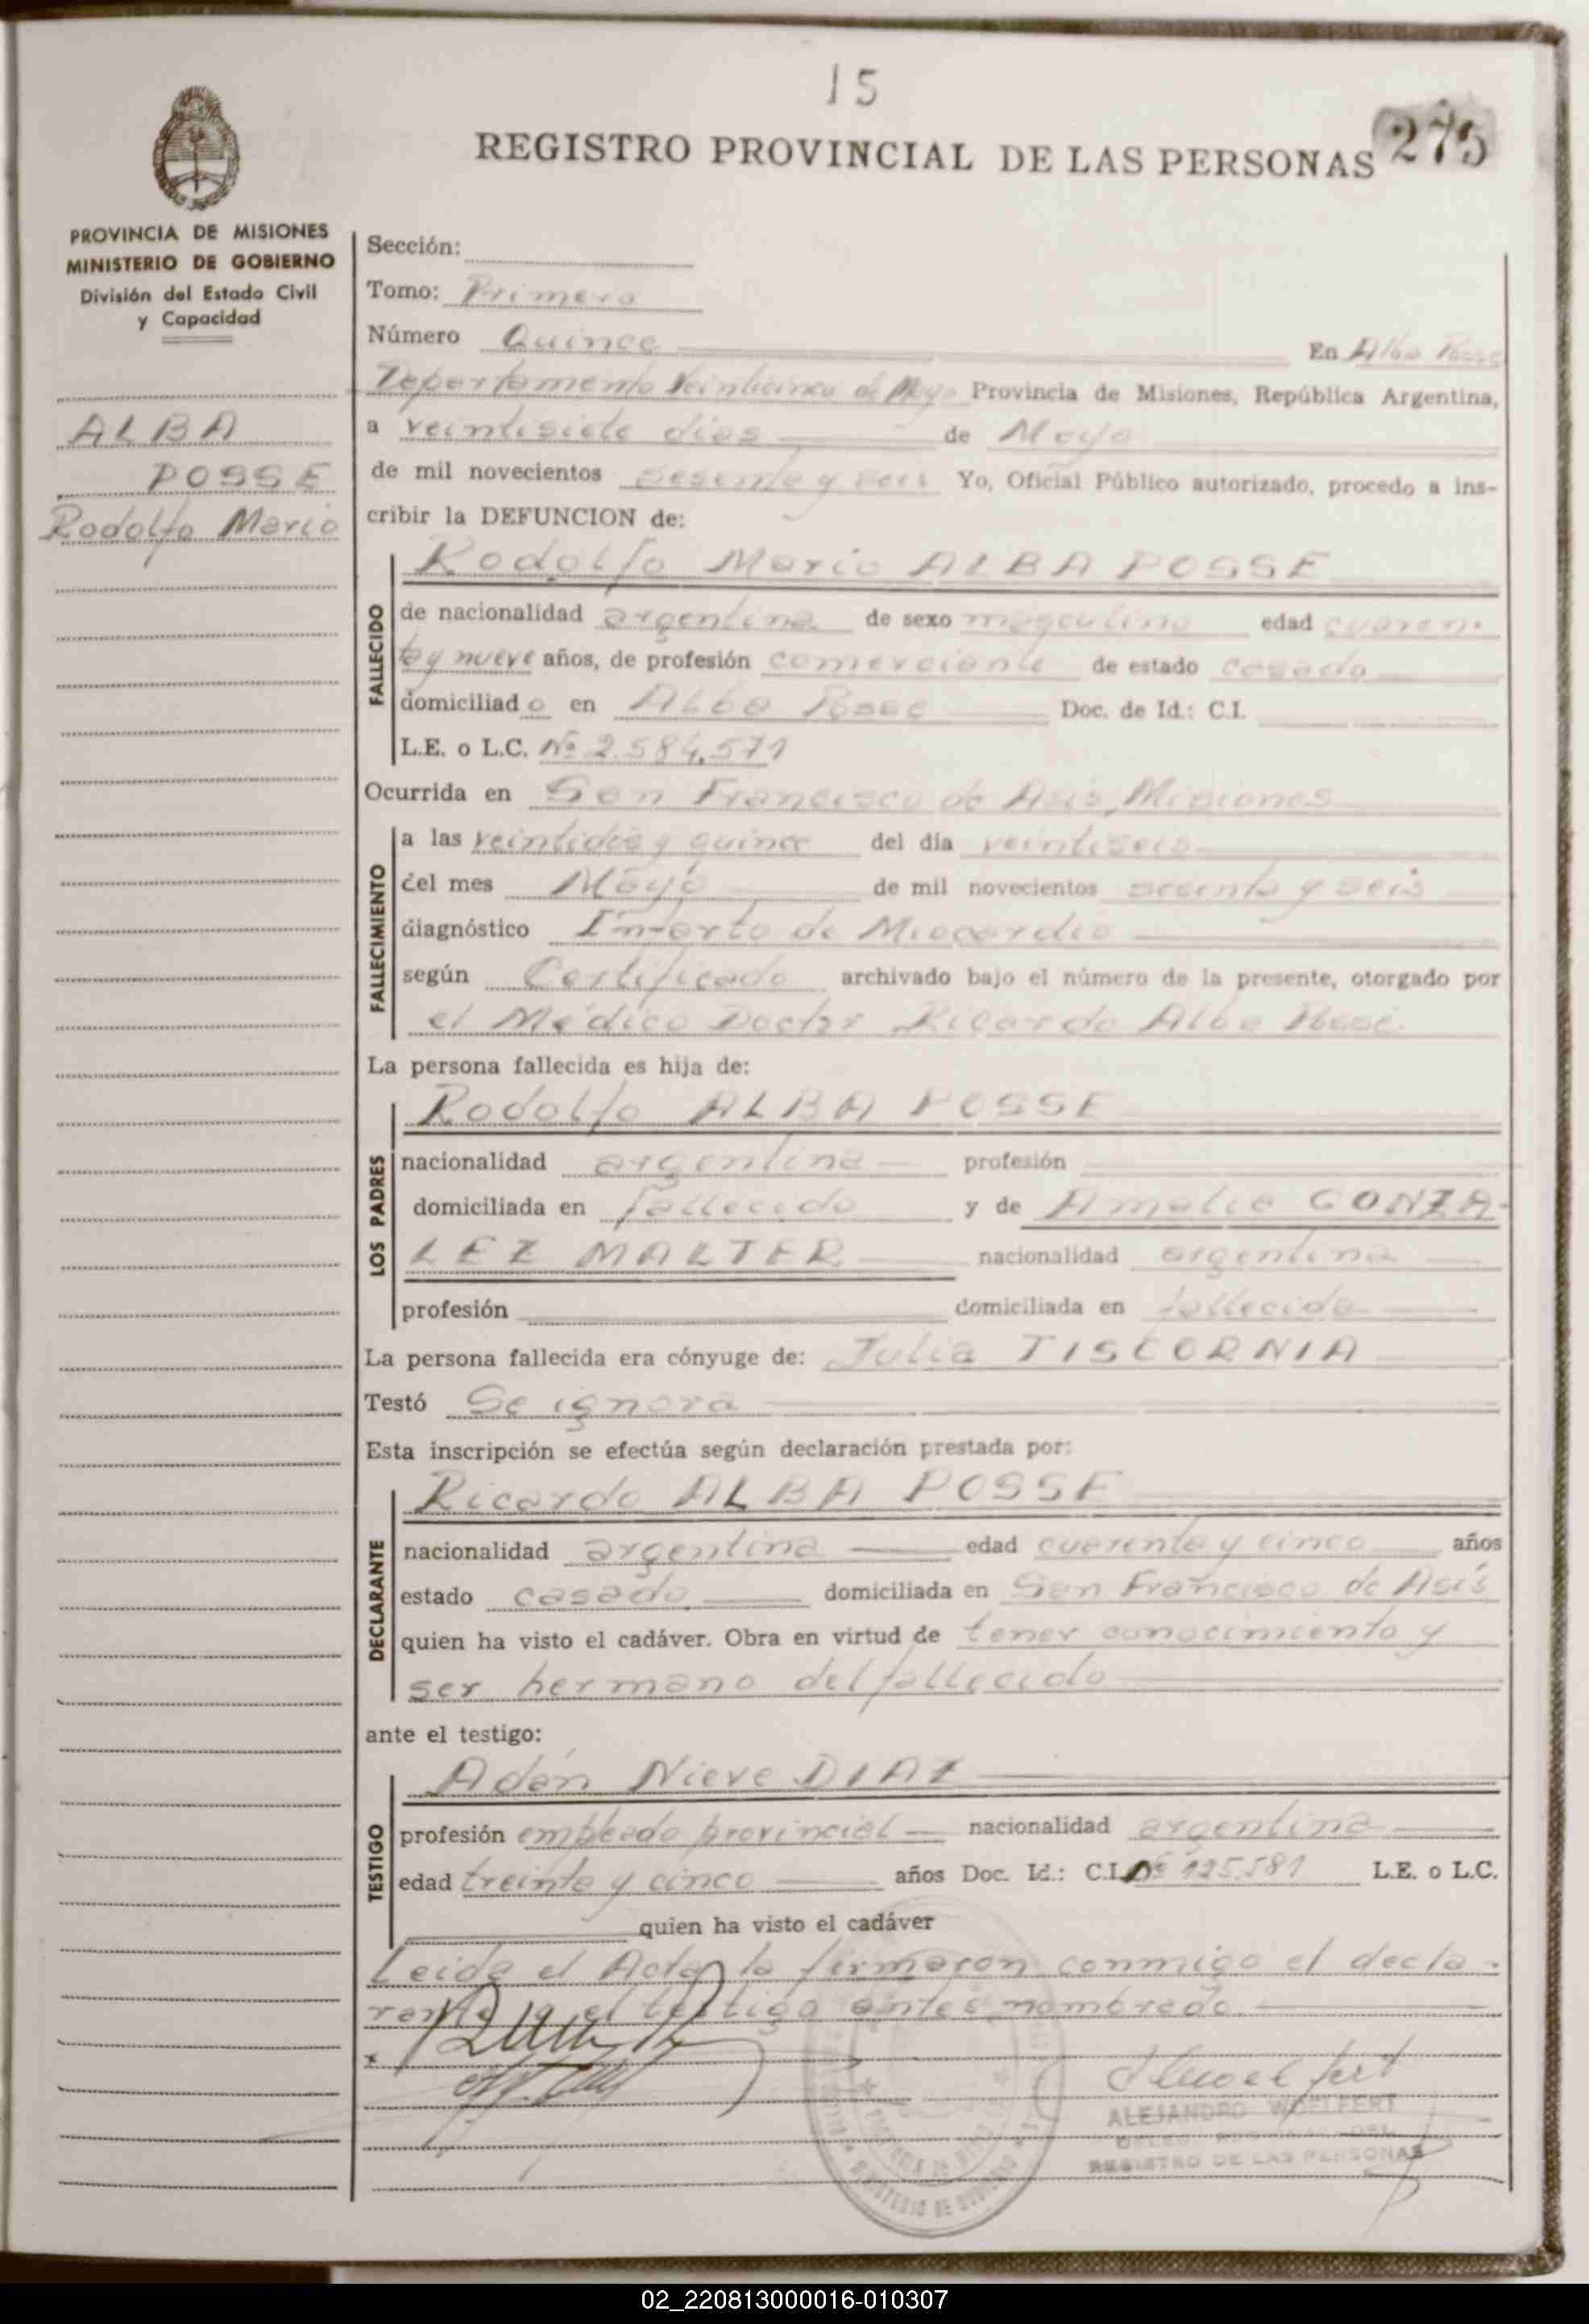 15
REGISTRO PROVINCIAL DE LAS PERSONAS
275
PROVINCIA DE MISIONES
MINISTERIO DE GOBIERNO
División del Estado Civil
y Capacidad
ALBA
POSSE
Rodolfo Mario
Sección:
Tomo: Primero
Número Quince En Alba Posse
Departamento Veinticinco de Mayo Provincia de Misiones, República Argentina,
a veintisiete dias de Mayo
de mil novecientos sesenta y seis Yo, Oficial Público autorizado, procedo a ins-
cribir la DEFUNCION de:
Rodolfo Mario ALBA POSSE
FALLECIDO
de nacionalidad argentina de sexo masculino edad cuaren-
ta y nueve años, de profesión comerciante de estado casado
domiciliado en Alba Posse Doc. de Id.: C.I.
L.E. o L.C. Nº 2.584.571
Ocurrida en San Francisco de Asís, Misiones
FALLECIMIENTO
a las veintidós y quince del día veintiseis
del mes Mayo de mil novecientos sesenta y seis
diagnóstico Infarto de Miocardio
según Certificado archivado bajo el número de la presente, otorgado por
el Médico Doctor Ricardo Alba Posse
La persona fallecida es hija de:
Rodolfo ALBA POSSE
LOS PADRES
nacionalidad argentina profesión
domiciliada en fallecido y de Amalia GONZA-
LEZ MALTER nacionalidad argentina
profesión domiciliada en fallecida
La persona fallecida era cónyuge de: Julia TISCORNIA
Testó Se ignora
Esta inscripción se efectúa según declaración prestada por:
Ricardo ALBA POSSE
DECLARANTE
nacionalidad argentina edad cuarenta y cinco años
estado casado domiciliada en San Francisco de Asís
quien ha visto el cadáver. Obra en virtud de tener conocimiento y
ser hermano del fallecido
ante el testigo:
Adán Nieve DIAZ
TESTIGO
profesión empleado provincial nacionalidad argentina
edad treinta y cinco años Doc. Id.: C.I. Nº 125.581 L.E. o L.C.
quien ha visto el cadáver
Leida el Acta, la firmaron conmigo el decla-
rante y el testigo antes nombrado
ALEJANDRO WOELFERT
REGISTRO DE LAS PERSONAS
02_220813000016-010307